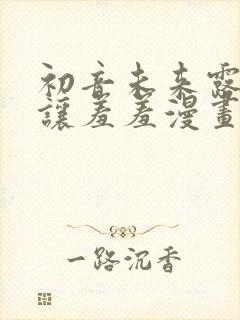 初音未来露
讓羞羞漫畫
一路沉香